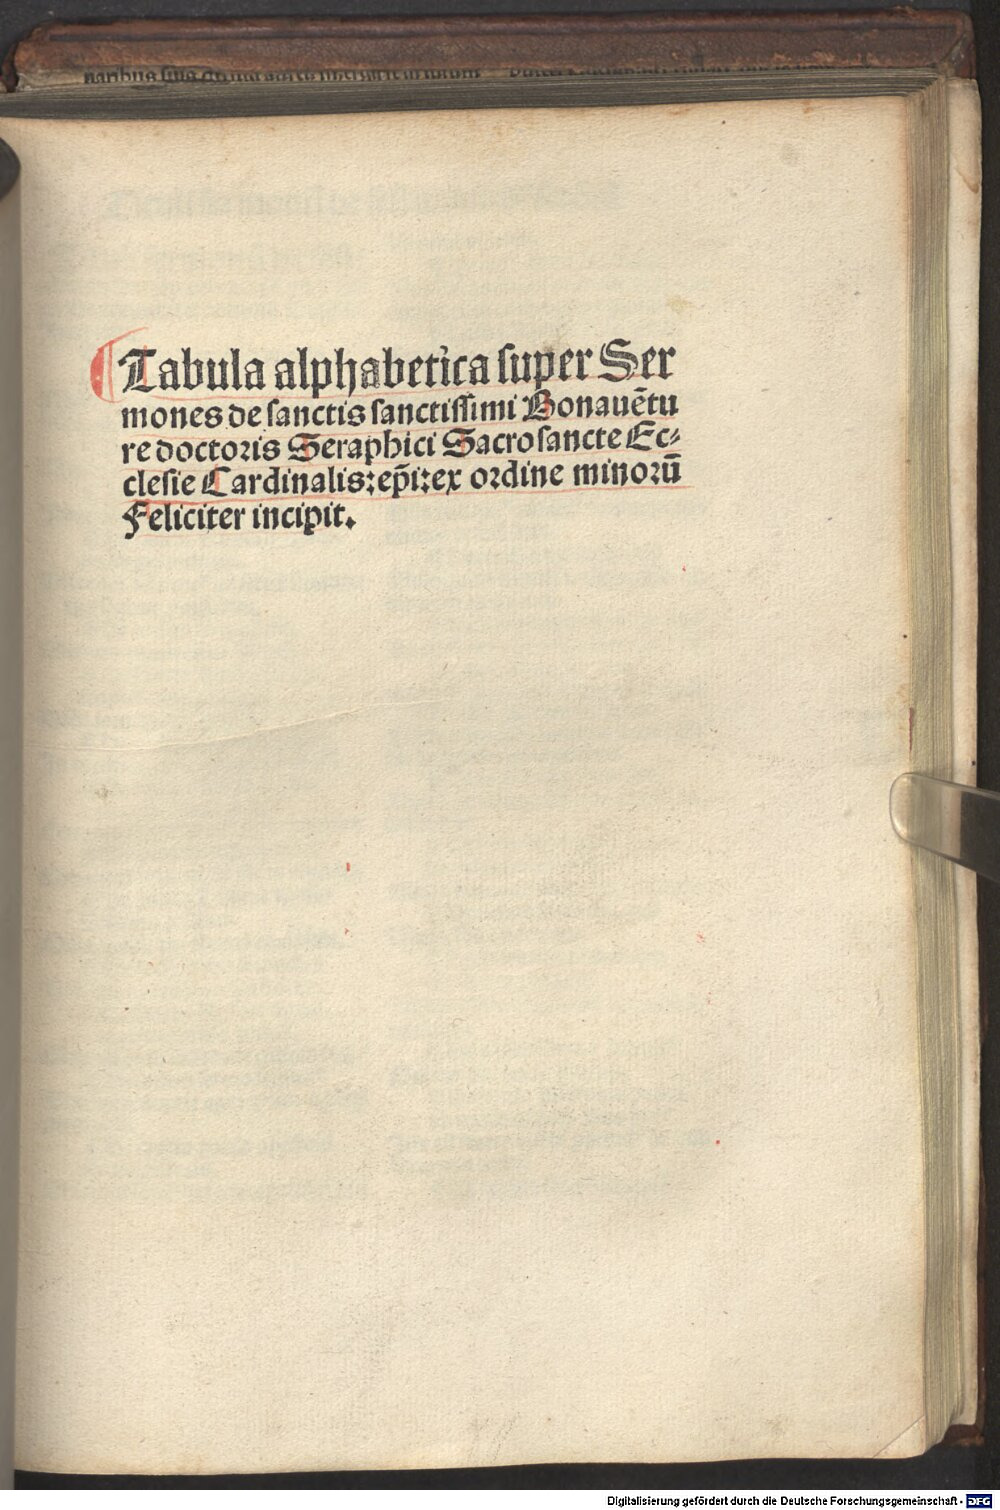 ¶Tabula alphabetica ſuper Ser
mones de ſanctis ſanctiſſimi Bonauẽtu
re doctoris Seraphici Sacroſancte Ec⸗
cleſie Cardinalis: ep̃i: ex ordine minorũ
Feliciter incipit.
Digitalisierung gefördert durch die Deutsche Forschungsgemeinschaft - DFG